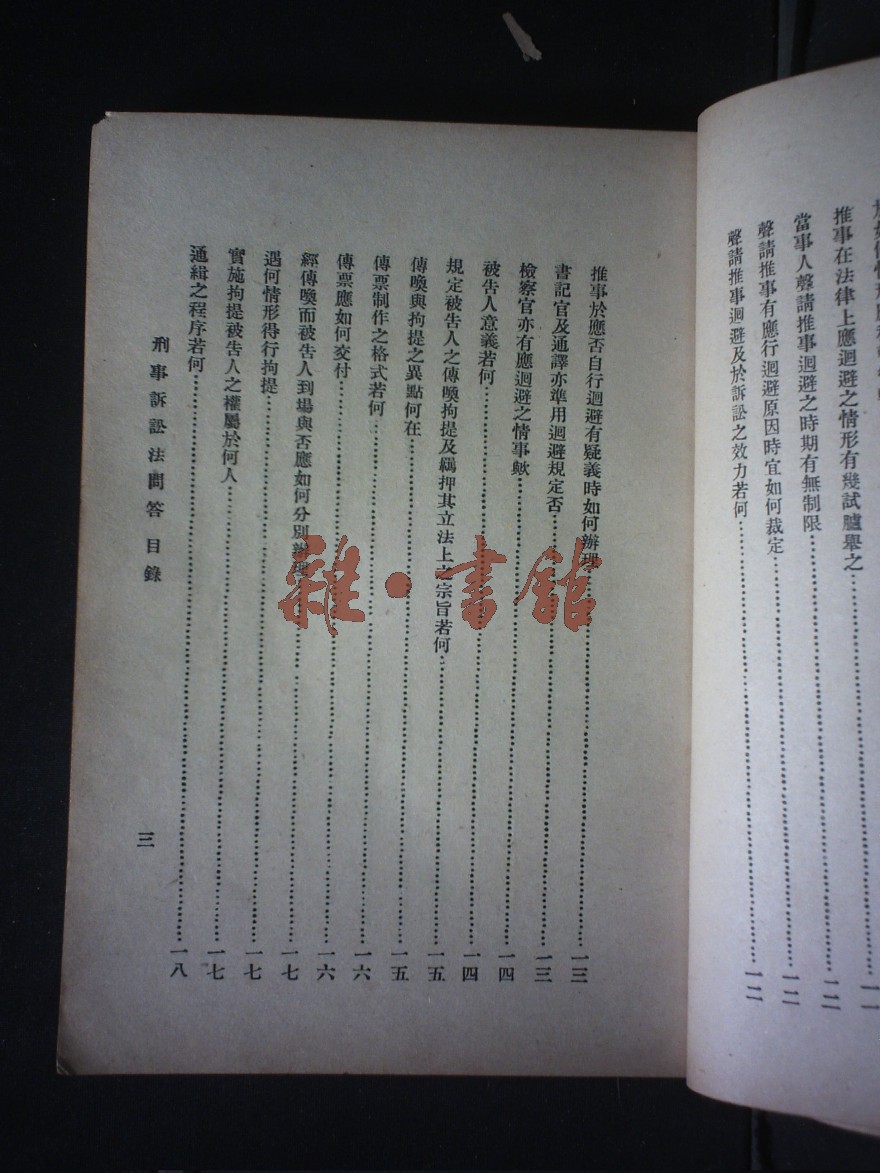 推事在法律上應迴避之情形有幾試臚舉之……一二
當事人聲請推事迴避之時期有無制限……一二
聲請推事有應行迴避原因時宜如何裁定……一二
聲請推事迴避及於訴訟之效力若何……一二
推事於應否自行迴避有疑義時如何辦理……一三
書記官及通譯亦準用迴避規定否……一三
檢察官亦有應迴避之情事歟……一四
被告人意義若何……一四
規定被告人之傳喚拘提及羈押其立法上之宗旨若何……一五
傳喚與拘提之異點何在……一五
傳票制作之格式若何……一六
傳票應如何交付……一六
經傳喚而被告人到場與否應如何分別辦理……一七
遇何情形得行拘提……一七
實施拘提被告人之權屬於何人……一七
通緝之程序若何……一八
刑事訴訟法問答 目錄
三
雜·書館